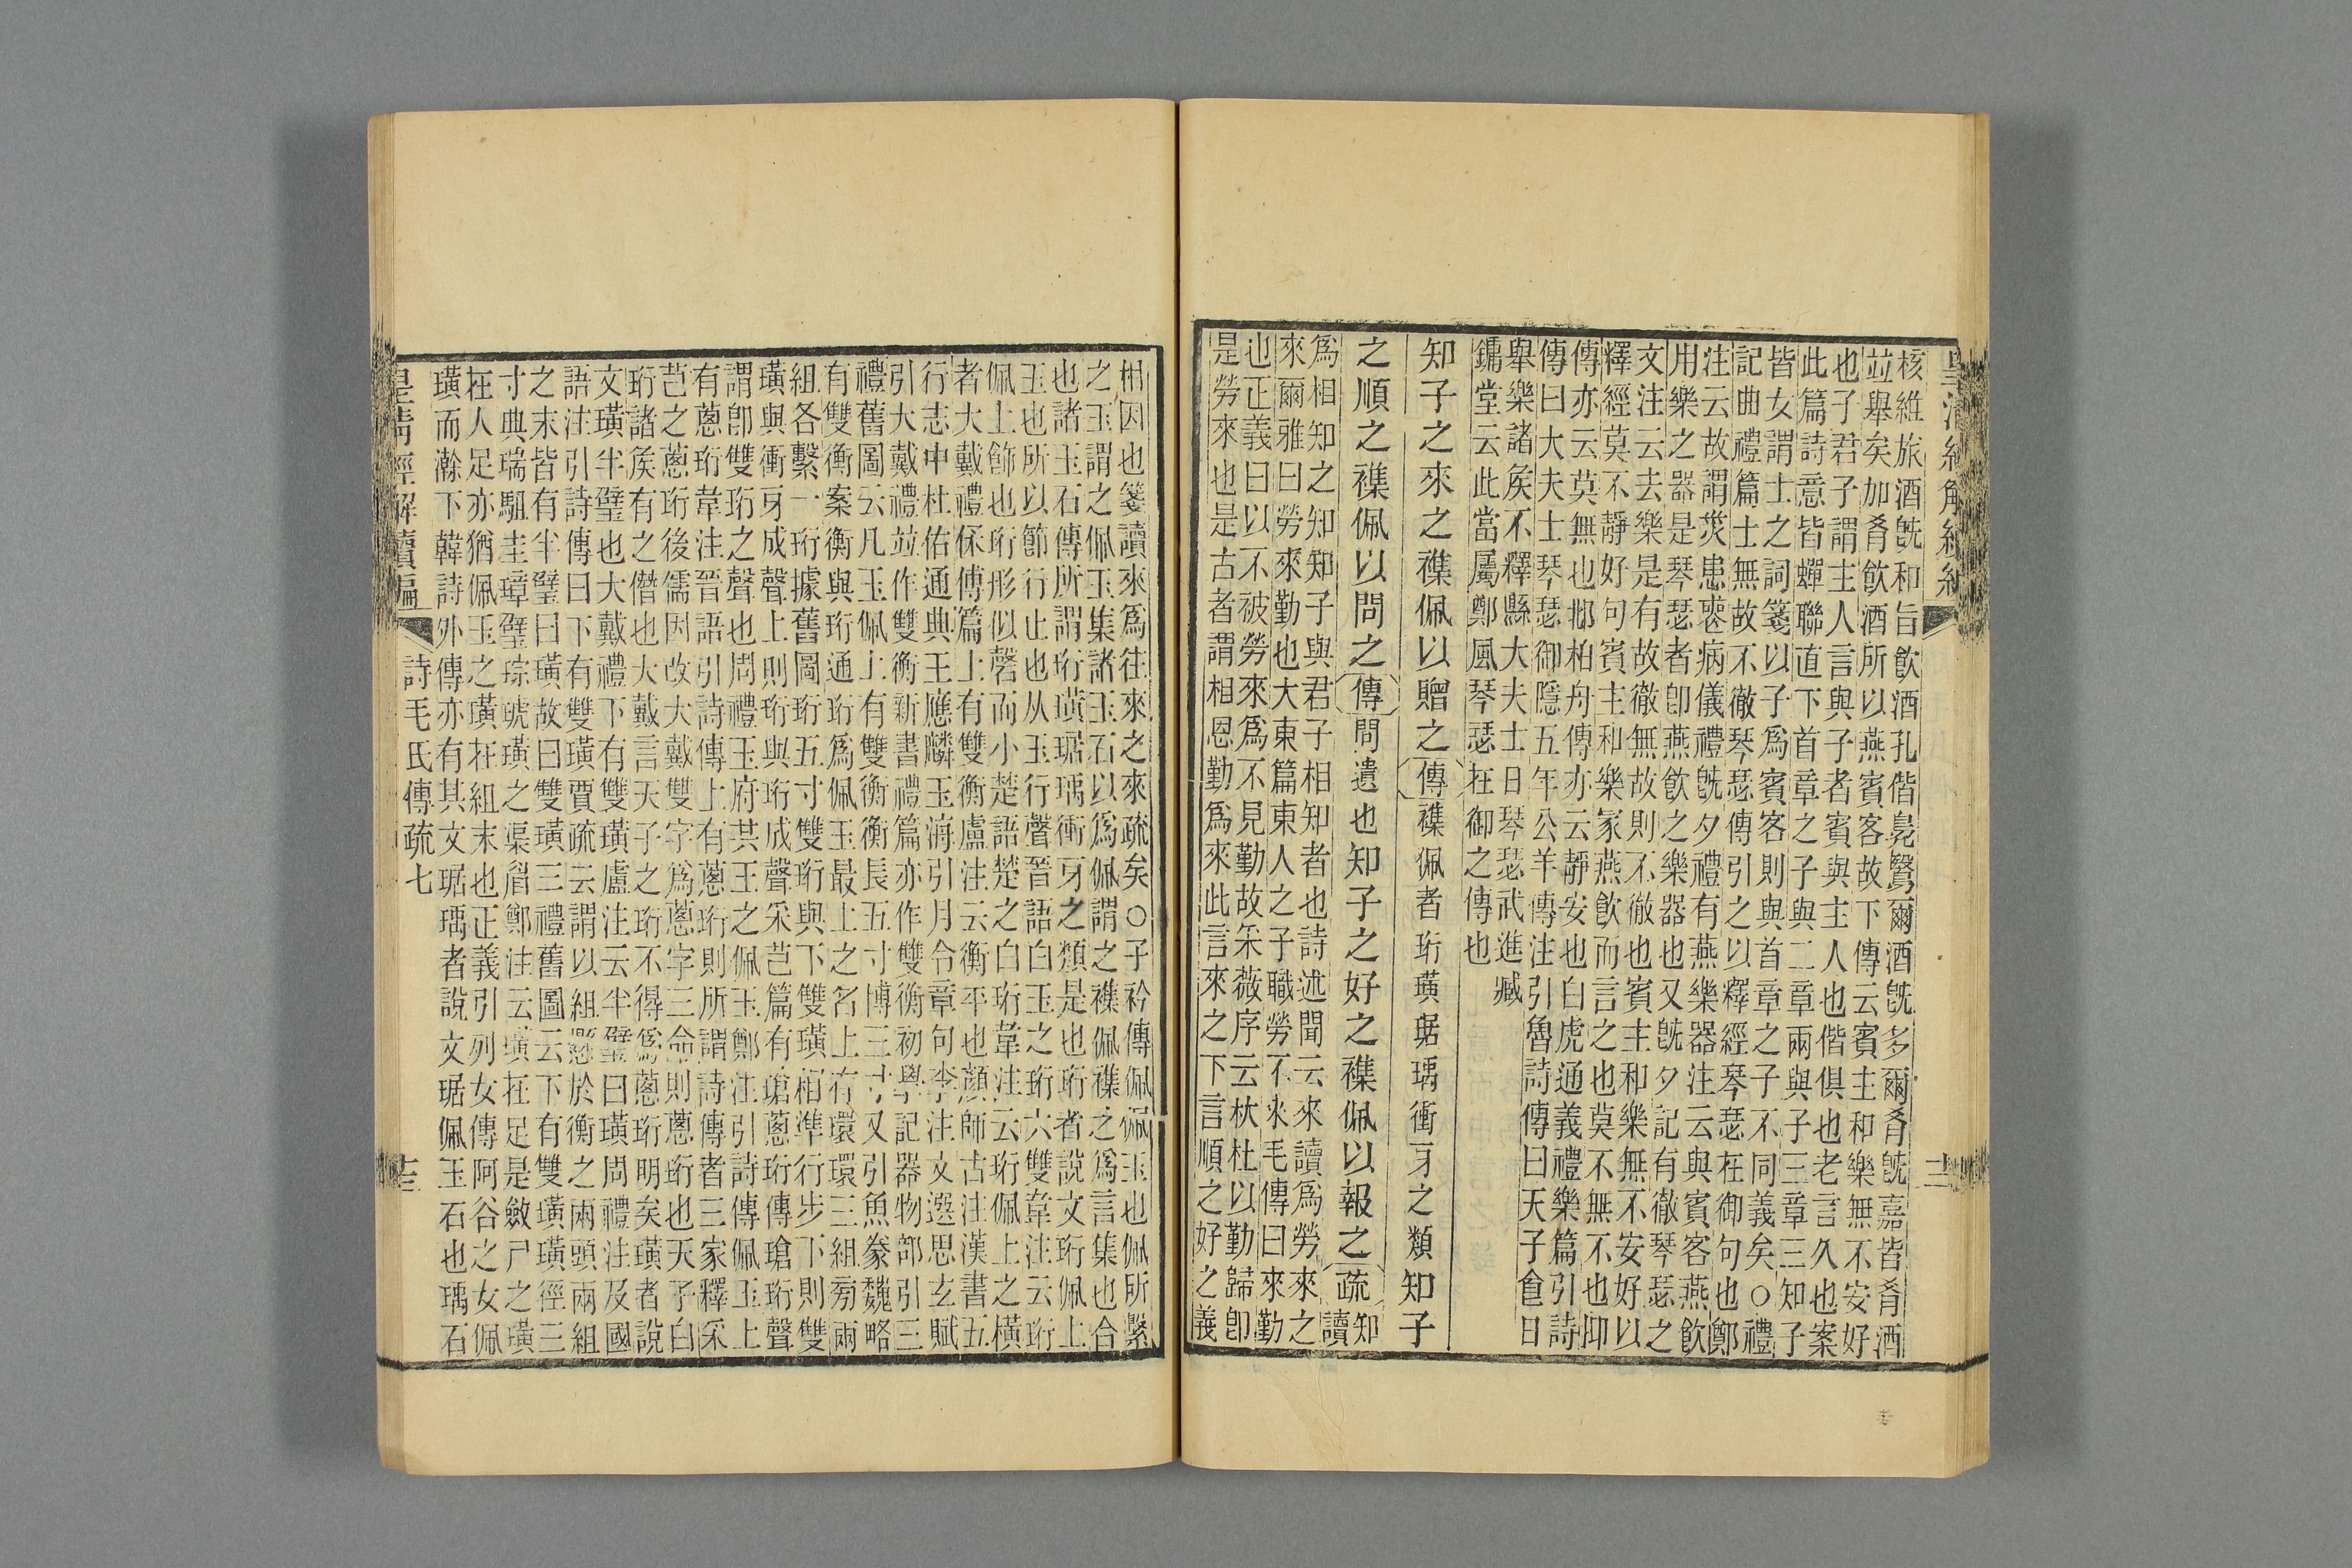 核維旅酒旣和旨飮酒孔偕鳧鷖爾酒旣多爾肴旣嘉皆肴酒
竝舉矣加肴飮酒所以燕賓客故下傳云賓主和樂無不安好
也子君子謂主人言與子者賓與主人也偕俱也老言久也案
此篇詩意皆蟬聯直下首章之子與二章兩與子三章三知子
皆女謂士之詞箋以子爲賓客則與首章之子不同義矣○禮
記曲禮篇士無故不徹琴瑟傳引之以釋經琴瑟在御句也鄭
注云故謂災患喪病儀禮旣夕禮有燕樂器注云與賓客燕飮
用樂之器是琴瑟者卽燕飮之樂器也又旣夕記有徹琴瑟之
文注云去樂是有故徹無故則不徹也賓主和樂無不安好以
釋經莫不靜好句賓主和樂冡燕飮而言之也莫不無不也卬
傳亦云莫無也邶柏舟傳亦云靜安也白虎通義禮樂篇引詩
傳曰大夫士琴瑟御隱五年公羊傳注引魯詩傳曰天子食日
舉樂諸矦不釋縣大夫士日琴瑟武進臧
鏞堂云此當屬鄭風琴瑟在御之傳也
知子之來之襍佩以贈之傳襍佩者珩璜琚瑀衝牙之類知子
之順之襍佩以問之傳問遺也知子之好之襍佩以報之疏知讀
爲相知之知知子與君子相知者也詩述聞云來讀爲勞來之
來爾雅曰勞來勤也大東篇東人之子職勞不來毛傳曰來勤
也正義曰以不被勞來爲不見勤故采薇序云杕杜以勤歸卽
是勞來也是古者謂相恩勤爲來此言來之下言順之好之義
相因也箋讀來爲往來之來疏矣○子衿傳佩佩玉也佩所繫
之玉謂之佩玉集諸玉石以爲佩謂之襍佩襍之爲言集也合
也諸玉石傳所謂珩璜琚瑀衝牙之類是也珩者說文珩佩上
玉也所以節行止也从玉行聲晉語白玉之珩六雙韋注云珩
佩上飾也珩形似磬而小楚語楚之白珩韋注云珩佩上之橫
者大戴禮保傅篇上有雙衡盧注云衡平也顏師古注漢書五
行志中杜佑通典王應麟玉海引月令章句李注文選思玄賦
引大戴禮竝作雙衡新書禮篇亦作雙衡初學記器物部引三
禮舊圖云凡玉佩上有雙衡衡長五寸博三寸又引魚豢魏略
有雙衡案衡與珩通珩爲佩玉最上之名上有環環三組旁兩
組各繫一珩據舊圖珩五寸雙珩與下雙璜相準行步下則雙
璜與衝牙成聲上則珩與珩成聲采芑篇有瑲蔥珩傳瑲珩聲
謂卽雙珩之聲也周禮玉府共王之佩玉鄭注引詩傳佩玉上
有蔥珩韋注晉語引詩傳上有蔥珩則所謂詩傳者三家釋采
芑之蔥珩後儒因改大戴雙字爲蔥字三命則蔥珩也天子白
珩諸矦有之僭也大戴言天子之珩不得爲蔥珩明矣璜者說
文璜半璧也大戴禮下有雙璜盧注云半璧曰璜周禮注及國
語注引詩傳曰下有雙璜賈疏云謂以組懸於衡之兩頭兩組
之末皆有半璧曰璜故曰雙璜三禮舊圖云下有雙璜璜徑三
寸典瑞駔圭璋璧琮琥璜之渠眉鄭注云璜在足是斂尸之璜
在人足亦猶佩玉之璜在組末也正義引列女傳阿谷之女佩
璜而澣下韓詩外傳亦有其文琚瑀者說文琚佩玉石也瑀石
皇淸經解續編
詩毛氏傳疏七